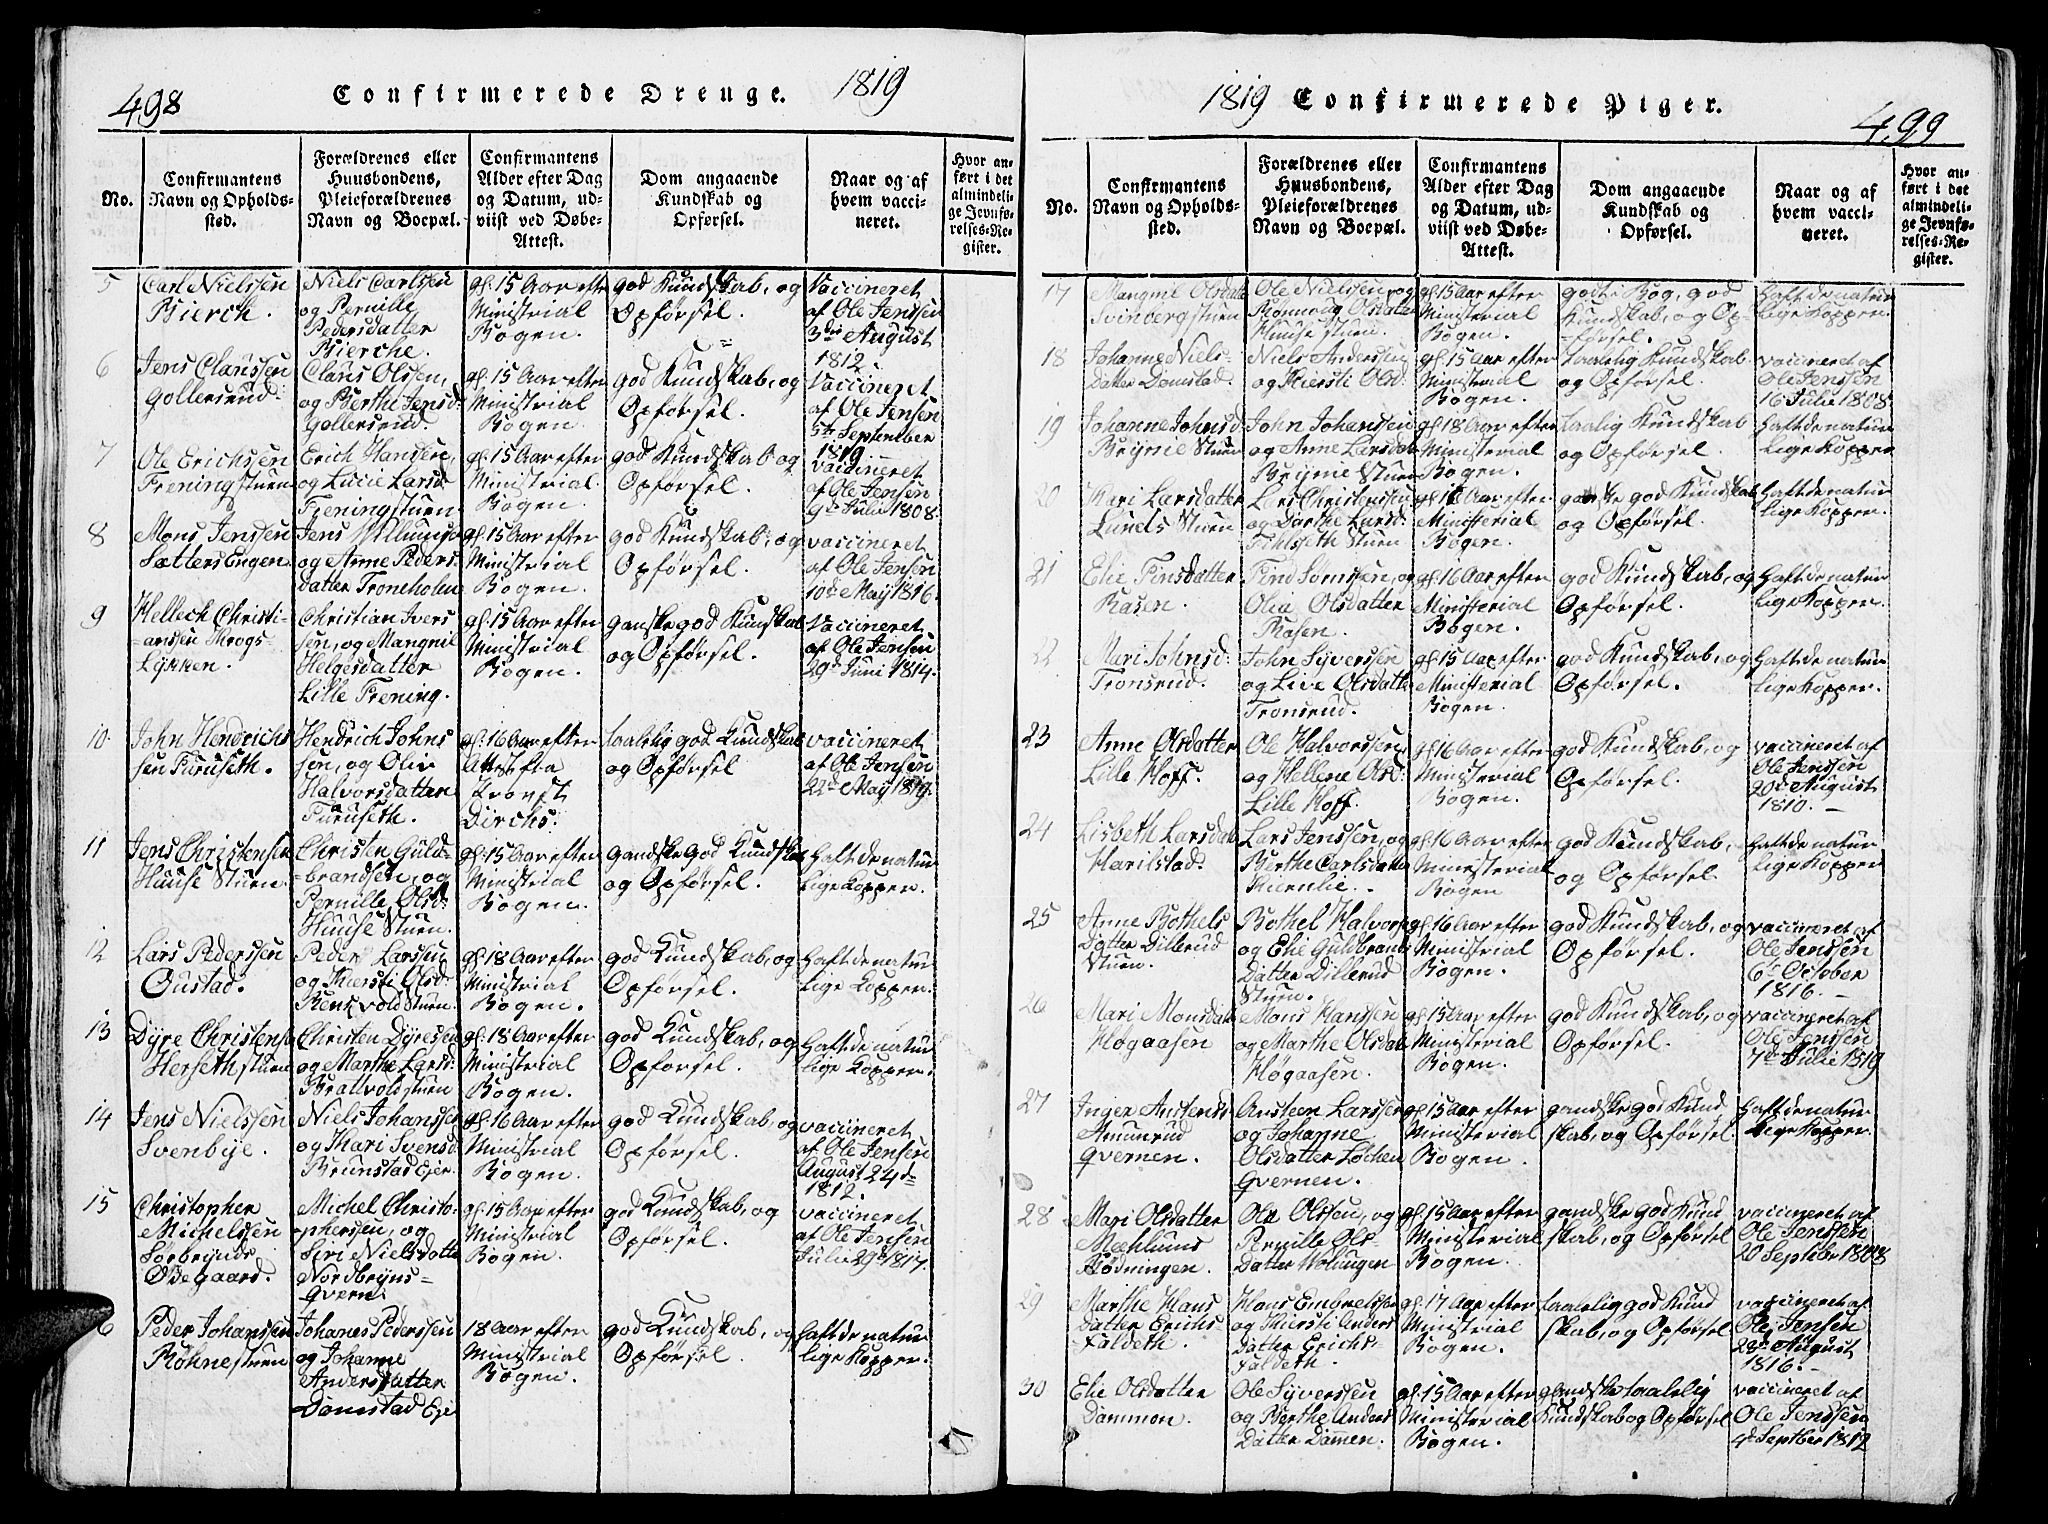 498
Confirmerede Drenge. 1819
No.
Confirmantens Navn og Opholds-sted.
Forældrenes eller Huusbondens, Pleieforældrenes Navn og Boepæl.
Confirmantens Alder efter Dag og Datum, ud-viist ved Døbe-Attest.
Dom angaaende Kundskab og Opførsel.
Naar og af hvem vacci-neret.
Hvor an-ført i det almindeli-ge Jevnfø-relses-Re-gister.
5
Carl Nielssen
Bierch.
Niels Carlssen
og Pernille
Pedersdatter
Bierche.
gl. 15 Aar efter
Ministrial
Bogen.
god Kundskab, og
Opførsel.
Vaccineret
af Ole Jenssen
3die August
1812.
6
Jens Claussen
Gollersrud.
Claus Olsen,
og Berthe Jensd.
Gollersrud.
gl. 15 Aar efter
Ministrial
Bogen.
god Kundskab, og
Opførsel.
Vaccineret
af Ole Jensen
5te September
1819.
7
Ole Erichssen
Freningstuen
Erich Hansen,
og Lucie Larsd.
Freningstuen
gl. 15 Aar efter
Ministrial
Bogen.
god Kundskab og
Opførsel.
vaccineret
af Ole Jensen
9de Julii 1808.
8
Mons Jenssen
Sætters Engen.
Jens
og Anne Peders
datter Troneholen
gl. 15 Aar efter
Ministrial
Bogen.
god Kundskab, og
Opførsel.
vaccineret
af Ole Jensen
10de Maij 1816.
9
Hellech Christi-
ansen Krogs-
Lykken.
Christian Ivers
sen, og Mangnil
Helgesdatter
Lille Frening.
gl. 15 Aar efter
Ministrial
Bogen.
ganske god Kundskab
og Opførsel.
Vaccineret
af Ole Jensen
29de Juni 1814.
10.
John Hendrichs
sen Furuseth.
Hendrich Johns
sen, og Oliv
Halvorsdatter
Furuseth.
gl. 16 Aar efter
Attest fra
Provst
Dirchs.
taalelig god Kundskab
og Opførsel
vaccineret
af Ole Jensen
22de Maij 1819.
11
Jens Christensen
Huuse Stuen.
Christen Guld-
brandsen, og
Pernille Olsd.
Huuse Stuen.
gl. 15 Aar efter
Ministrial
Bogen.
gandske god Kundskab
og Opførsel.
Haft de natur
lige Kopper.
12
Lars Pederssen
Oustad.
Peder Larssen
og Kiersti Olsd.
Benkvold Stuen.
gl. 18 Aar efter
Ministrial
Bogen.
god Kundskab, og
Opførsel.
Haft de natur
lige Kopper.
13
Dyre Christens
Herseth stuen
Christen Dyresen
og Marthe Larsd.
Brattvold stuen
gl. 18 Aar efter
Ministrial
Bogen.
god Kundskab, og
Opførsel.
Haft de natur
lige Kopper.
14
Jens Nielssen
Svenbye.
Niels Johanssen
og Kari Svensd.
Brunstad Ejer.
gl. 16 Aar efter
Ministrial
Bogen.
god Kundskab, og
Opførsel.
vaccineret
af Ole Jensen
August 24de
1812.
15
Christopher
Michelssen
Sørbrynds
Ødegaard.
Michel Christo-
phersen, og
Siri Nielsdatter
Nordbryns-
qvern.
gl. 15 Aar efter
Ministrial
Bogen
god Kundskab, og
Opførsel.
vaccineret
af Ole Jensen
Julii 29de 1817.
6
Peder Johanssen
Bøhnestuen
Johanes Pederssen
og Johanne
Andersdatter
Dømstad Eje
18 Aar efter
Ministrial
Bogen.
god Kundskab, og
Opførsel.
Haft de natur
lige Kopper.
1819 Confirmerede Piger.
499
No.
Confirmantens Navn og Opholds-sted.
Forældrenes eller Huusbondens, Pleieforældrenes Navn og Boepæl.
Confirmantens Alder efter Dag og Datum, ud-viist ved Døbe-Attest.
Dom angaaende Kundskab og Opførsel.
Naar og af hvem vacci-neret.
Hvor an-ført i det almindeli-ge Jevnfø-relses-Re-gister.
17
Mangnil Olsdatt
Svinbergstuen
Ole Nielssen, og
Rønnoug Olsdatter
Huuse stuen.
gl. 15 Aar efter
Ministrial
Bogen.
godt i Bog, god
Kundskab, og Op-
førsel.
Haft de natur
lige Kopper.
18
Johanne Niels-
datter Dømstad.
Niels Anderssen
og Kiersti Olsd.
gl. 15 Aar efter
Ministrial
Bogen.
taalelig Kundskab
og Opførsel.
vaccineret af
Ole Jenssen
16 Julii 1808.
19
Johanne Johnsd.
Brynie Stuen
John Johansen
og Anne Larsdatt
Brynie Stuen
gl. 18 Aar efter
Ministrial
Bogen.
taalig Kundskab
og Opførsel.
Haft de natur
lige Kopper
20
Kari Larsdatter
Lunels Stuen
Lars Christenssen
og Dorthe Larsd.
Fihlseth Stuen
gl. 16 Aar efter
Ministerial
Bogen.
ganske god Kundskab
og Opførsel.
Haft de natur
lige Kopper.
21
Elie Finsdatter
Rasen.
Find Sørnssen, og
Olia Olsdatter
Rasen.
gl. 16 Aar efter
Ministerial
Bogen.
god Kundskab, og
Opførsel.
Haft de natur
lige Kopper.
22
Mari Johnsd.
Tronsrud.
John Syverssen
og Live Olsdatter
Tronsrud.
gl. 15 Aar efter
Ministerial
Bogen.
god Kundskab, og
Opførsel.
Haft de natur
lige Kopper.
23
Anne Olsdatter
Lille Hoff.
Ole Halvorssen,
og Hellene Olsd.
Lille Hoff.
gl. 16 Aar efter
Ministrial
Bogen.
god Kundskab, og
Opførsel.
vaccineret af
Ole Jenssen
20de August
1810. –
24
Lisbeth Larsdatt
Harilstad.
Lars Jenssen, og
Berthe Carlsdatter
Kiernlie.
gl. 16 Aar efter
Ministerial
Bogen
god Kundskab,
og Opførsel.
Haft de natur
lige Kopper.
25
Anne Bothels
Datter Dillerud
Stuen.
Bothel Halvors
og Elie Guldbrands
Datter Dillerud
Stuen.
gl. 16 Aar efter
Ministrial
Bogen.
god Kundskab, og
Opførsel.
vaccineret af
Ole Jenssen
6te October
1816. –
26
Mari Monsdatt
Høgaasen
Mons Hanssen
og Marthe Olsdatt
Høgaasen.
gl. 15 Aar efter
Ministrial
Bogen.
god Kundskab, og
Opførsel.
vaccineret af
Ole Jenssen
7de Julii 1819
27
Inger Austensd.
Amunrud
Qvernen.
Austeen Larssen
og Johanne
Olsdatter Løchen
Qvernen.
gl. 15 Aar efter
Ministerial
Bogen.
gandske god Kund
skab, og Opførsel.
Haft de natur
lige Kopper.
28
Mari Olsdatter
Mæhlums
Rødningen.
Ole Olssen, og
Pernille Ols-
datter Holungen
gl. 15 Aar efter
Ministerial
Bogen.
gandske god Kund
skab, og Opførsel
vaccineret af
Ole Jenssen
20 Septber 1808
29
Marthe Hans
datter Erichs-
Faldeth.
Hans Embretssen
og Kirsti Anders
datter Erichs-
Faldeth.
gl. 17 Aar efter
Ministrial
Bogen.
taalelig god Kund
skab, og Opførsel
vaccineret af
Ole Jensen
28de August
1816. –
30
Elie Olsdatter
Dammen.
Ole Syverssen
og Berthe Anders
Datter Dammen.
gl. 15 Aar efter
Ministerial
Bogen.
gandske taalelig
Kundskab og Opførsel
vaccineret af
Ole Jenssen
4de Septber 1812